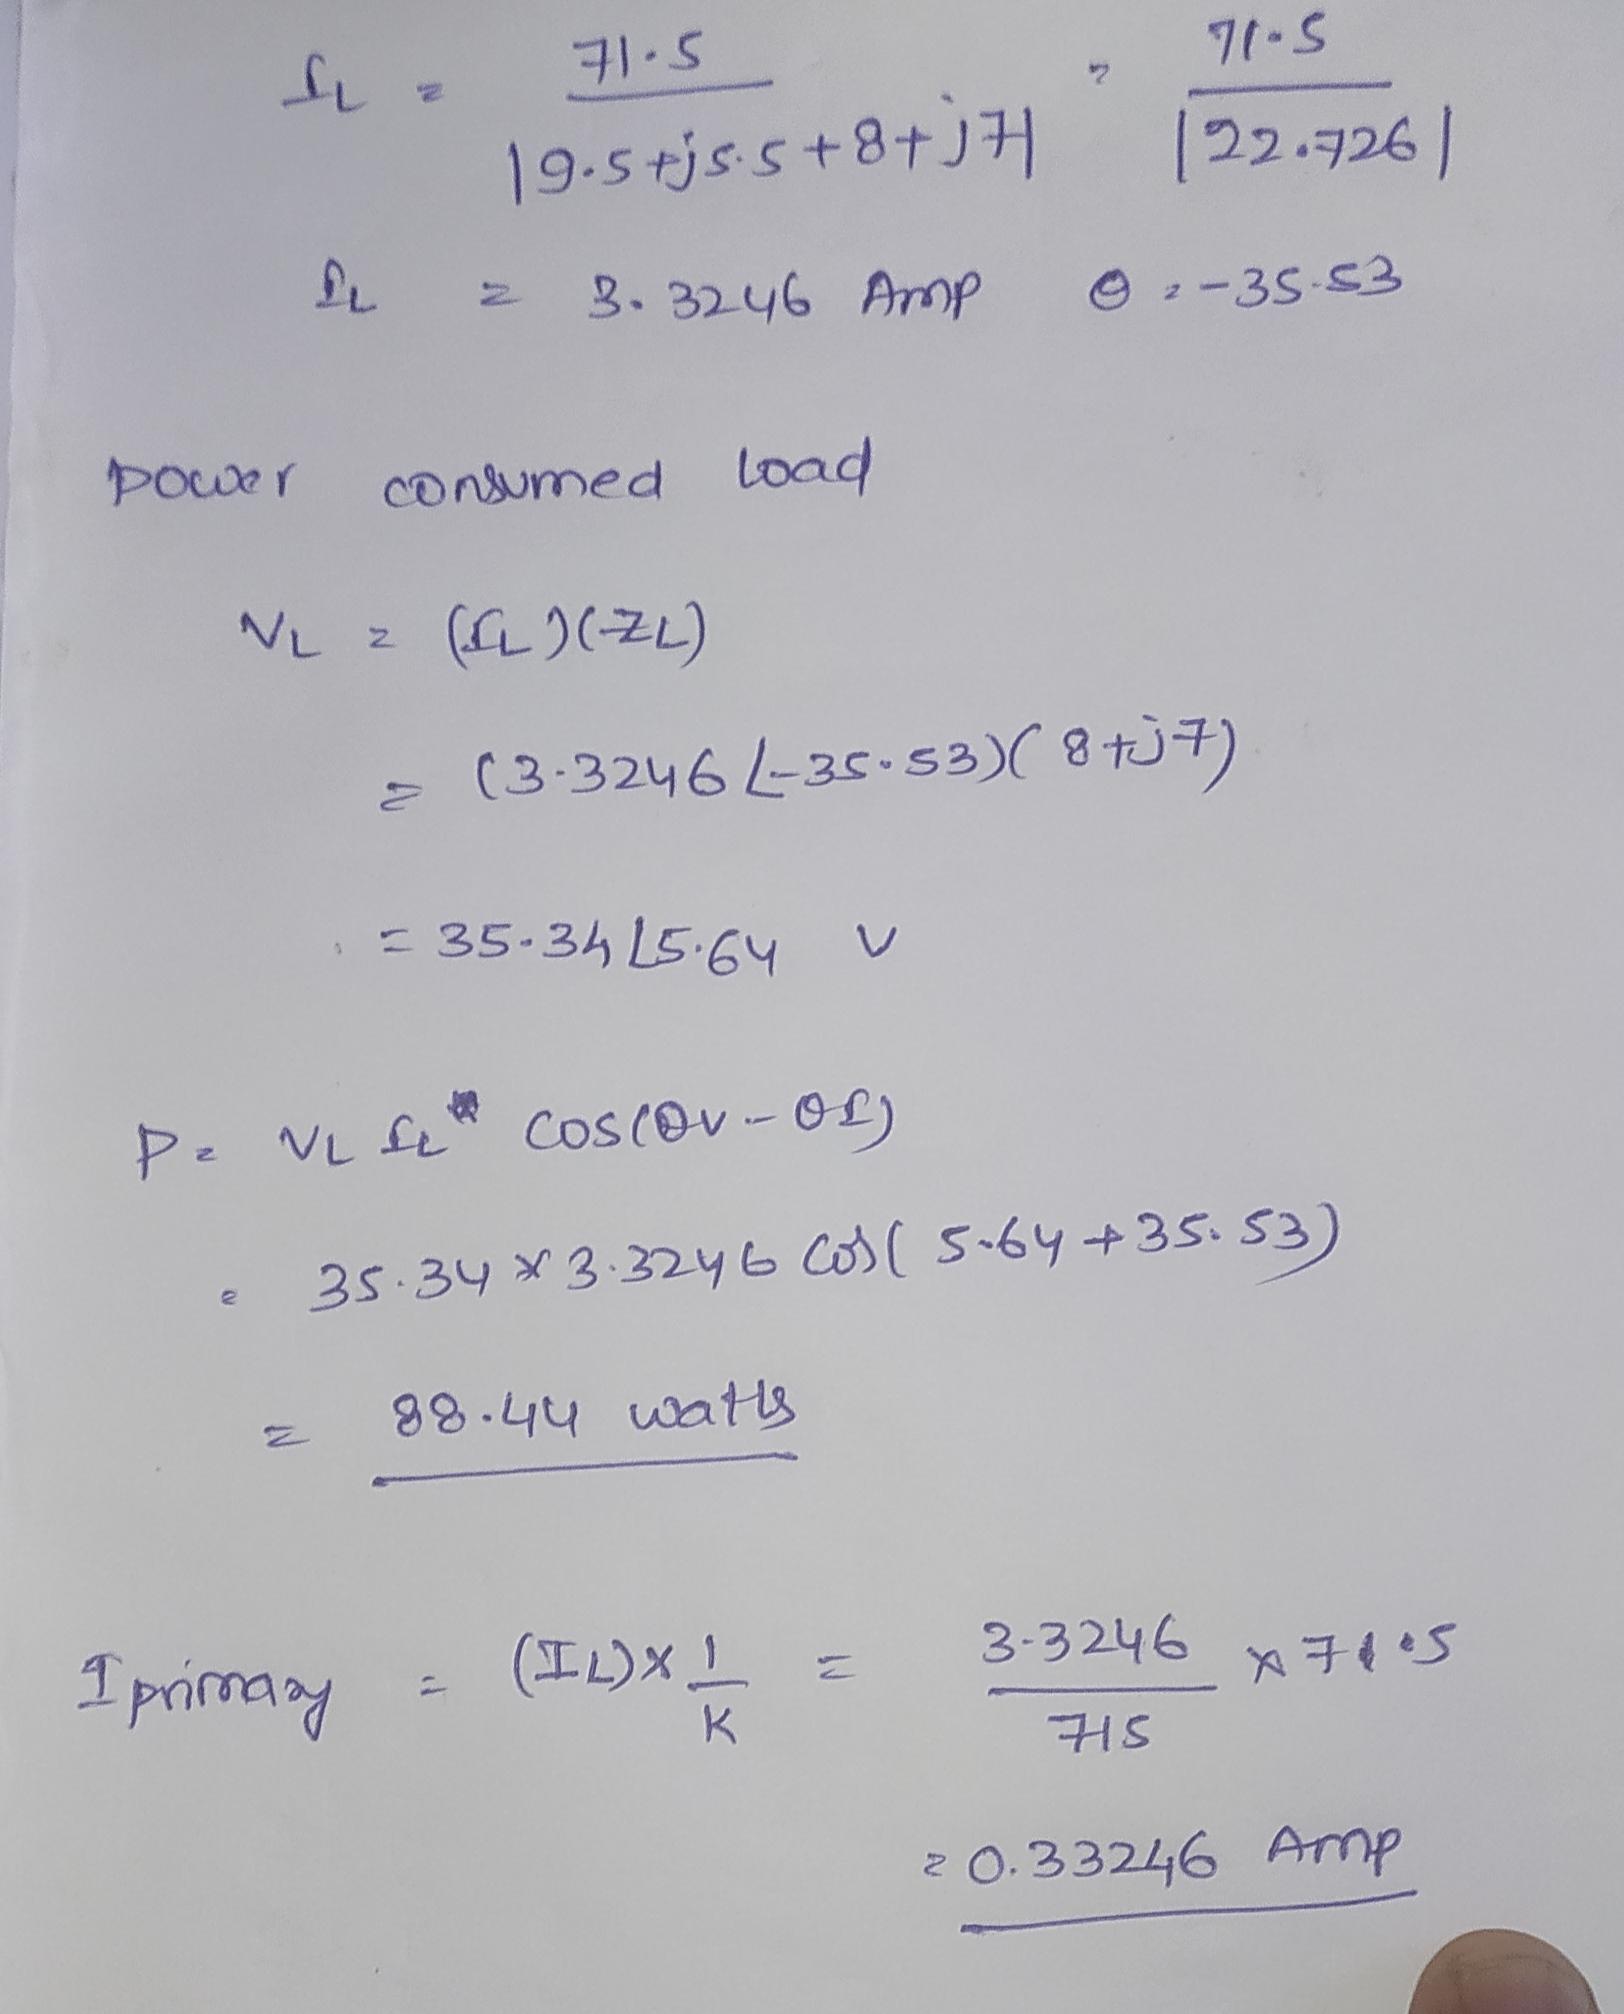 IL = 71.5 / |9.5+j5.5+8+j7| = 71.5 / |22.726|
IL = 3.3246 Amp θ = -35.53
Power consumed load
VL = (IL)(ZL)
= (3.3246∠-35.53)(8+j7)
= 35.34∠5.64 V
P = VL IL* cos(θv-θI)
= 35.34 × 3.3246 cos(5.64+35.53)
= 88.44 watts
I primary = (IL) × 1/K = 3.3246/715 × 71.5
= 0.33246 Amp